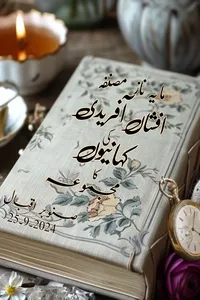 مایہ ناز مصنفہ
افشاں آفریدی
کی
کہانیوں
کا
مجموعہ
صنوبر اقبال
25-9-2024